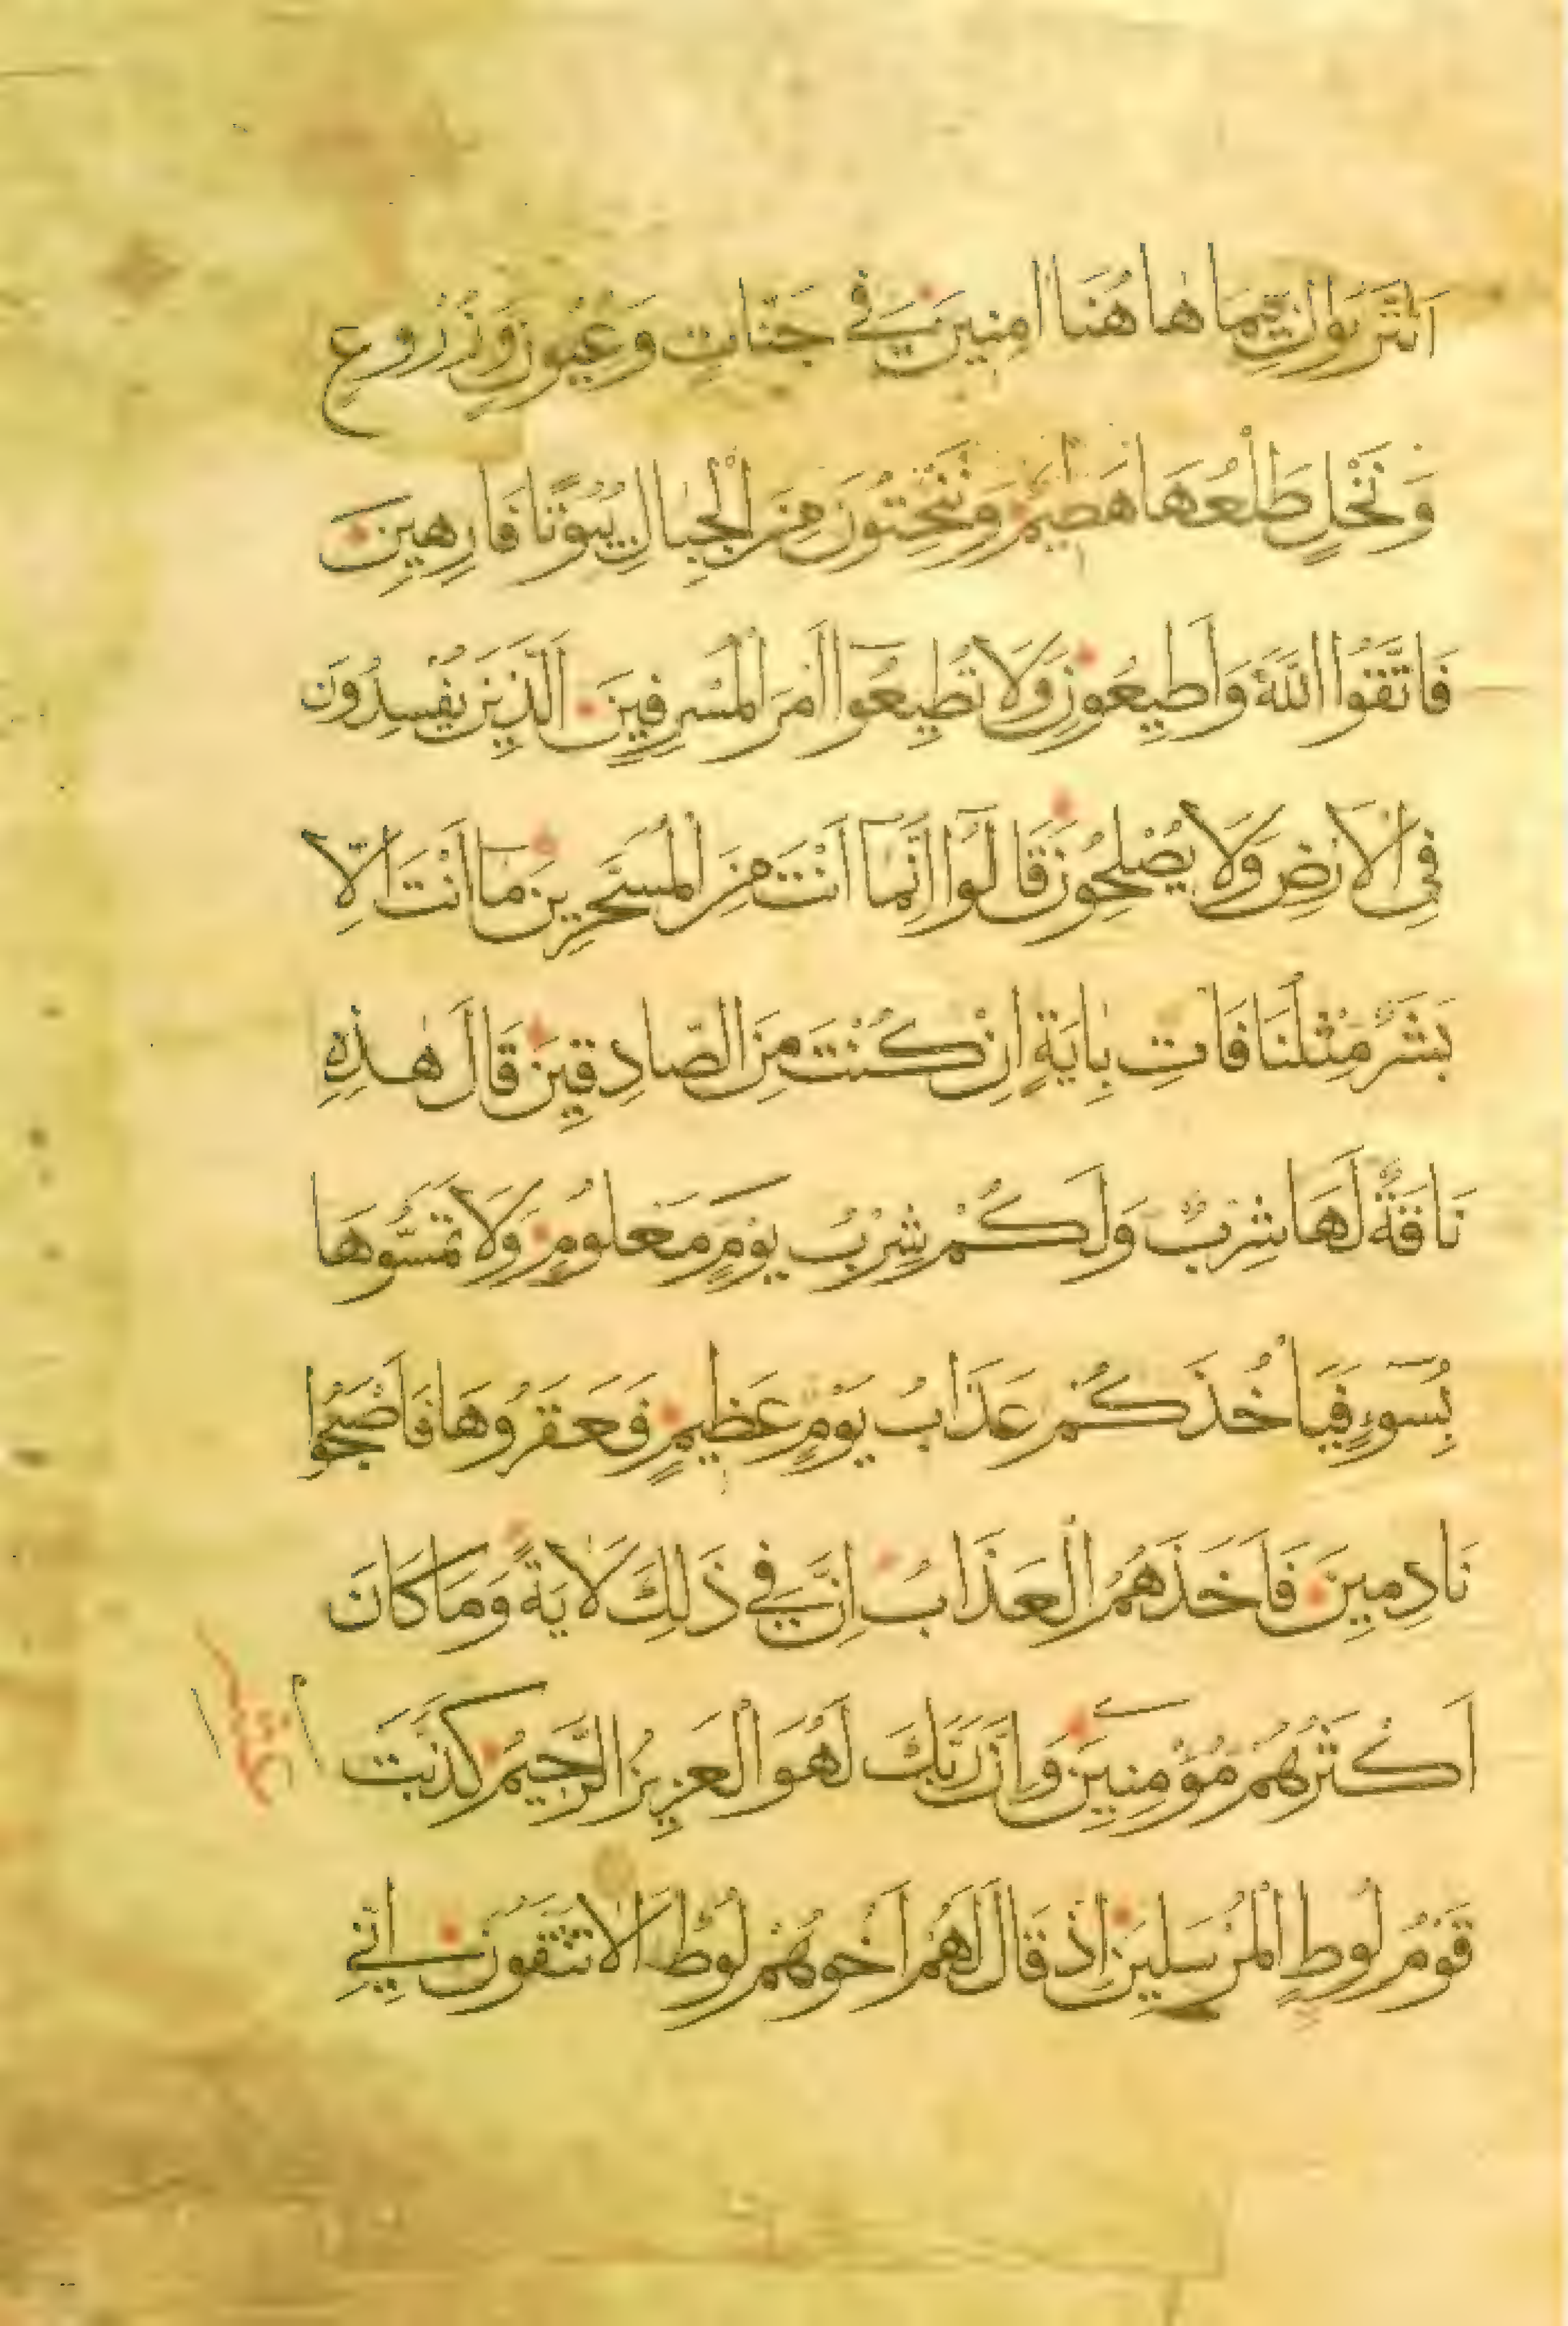 اَتُتْرَكُونَ فِيمَا هٰا هُنَا اٰمِنِينَ فِي جَنّاتٍ وَعُيُونٍ وَزُرُوعٍ
وَنَخْلٍ طَلْعُهَا هَضِيمٌ وَتَنْحِتُونَ مِنَ الْجِبالِ بُيُوتًا فَارِهِينَ
فَاتَّقُوا اللّٰهَ وَاَطِيعُونِ وَلَا تُطِيعُوا اَمْرَ الْمُسْرِفِينَ اَلَّذِينَ يُفْسِدُونَ
فِي الْاَرْضِ وَلَا يُصْلِحُونَ قَالُوا اِنَّمَا اَنْتَ مِنَ الْمُسَحَّرِينَ مَا اَنْتَ اِلَّا
بَشَرٌ مِثْلُنَا فَاتِ بِاٰيَةٍ اِنْ كُنْتَ مِنَ الصّادِقِينَ قَالَ هٰذِهِ
نَاقَةٌ لَهَا شِرْبٌ وَلَكُمْ شِرْبُ يَوْمٍ مَعْلُومٍ وَلَا تَمَسُّوهَا
بِسُوٓءٍ فَيَاْخُذَكُمْ عَذَابُ يَوْمٍ عَظِيمٍ فَعَقَرُوهَا فَاَصْبَحُوا
نَادِمِينَ فَاَخَذَهُمُ الْعَذَابُ اِنَّ فِي ذٰلِكَ لَاٰيَةً وَمَا كَانَ
اَكْثَرُهُمْ مُؤْمِنِينَ وَاِنَّ رَبَّكَ لَهُوَ الْعَزِيزُ الرَّحِيمُ كَذَّبَتْ
قَوْمُ لُوطٍ الْمُرْسَلِينَ اِذْ قَالَ لَهُمْ اَخُوهُمْ لُوطٌ اَلَا تَتَّقُونَ اِنِّي